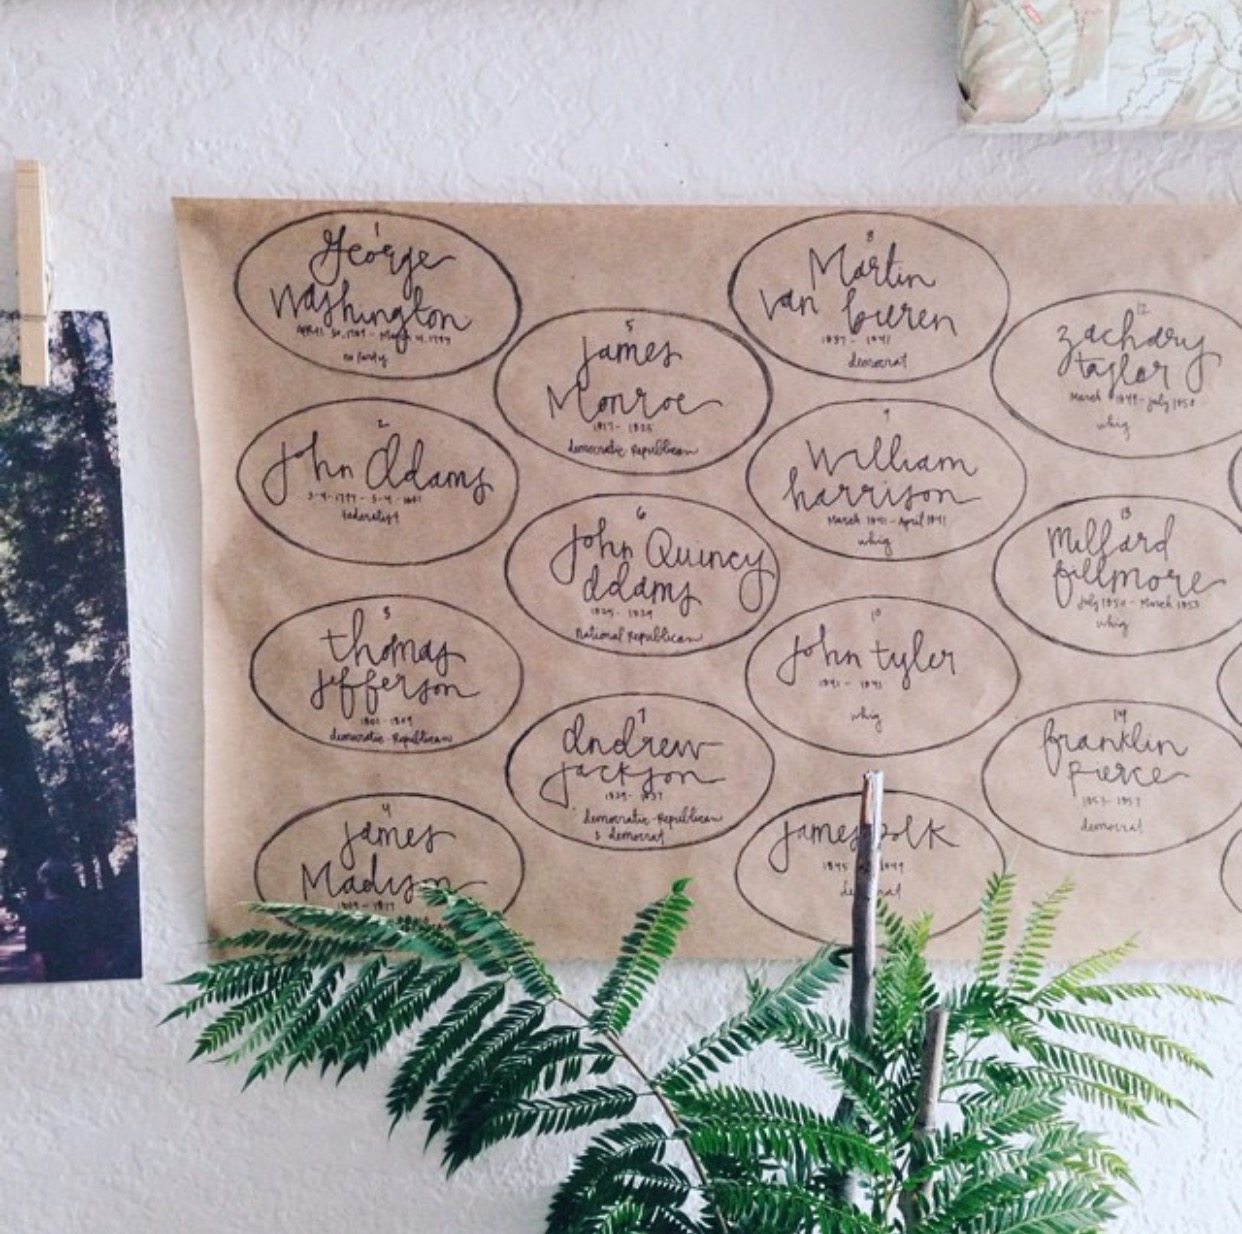 1
George
Washington
April 30, 1789 - March 4, 1797
no party
2
John Adams
3-4-1797 - 3-4-1801
federalist
3
thomas
jefferson
1801 - 1809
democratic-Republican
4
james
Madison
1809 - 1817
5
james
Monroe
1817 - 1825
democratic-Republican
6
John Quincy
Adams
1825 - 1829
National Republican
7
Andrew
jackson
1829 - 1837
democratic-Republican
& democrat
8
Martin
van buren
1837 - 1841
democrat
9
William
harrison
March 1841 - April 1841
whig
10
John tyler
1841 - 1845
whig
james polk
1845 1849
democrat
12
zachary
taylor
March 1849 - july 1850
whig
13
Millard
fillmore
july 1850 - March 1853
whig
14
franklin
pierce
1853 - 1857
democrat